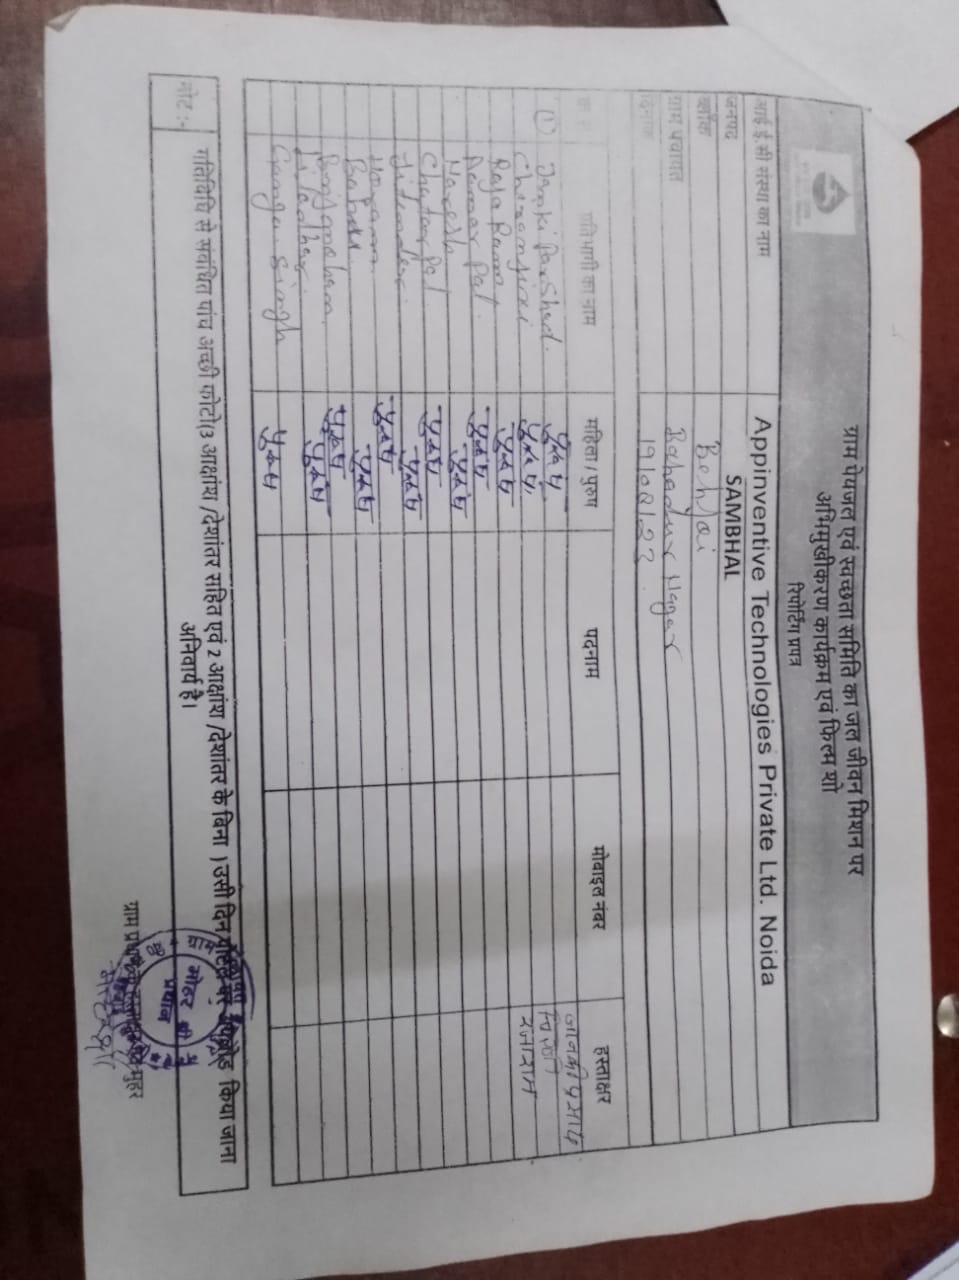 ग्राम पेयजल एवं स्वच्छता समिति का जल जीवन मिशन पर
अभिमुखीकरण कार्यक्रम एवं फिल्म शो
रिपोर्टिंग प्रपत्र
आई.ई.सी संस्था का नाम Appinventive Technologies Private Ltd. Noida
जनपद SAMBHAL
ब्लॉक Behjoi
ग्राम पंचायत Bahadur Nagar
दिनांक 19/02/23
क्र सं प्रतिभागी का नाम महिला / पुरुष पदनाम मोबाइल नंबर हस्ताक्षर
① Janki Parshad. पुरुष जानकी प्रसाद
Chiranjivi पुरुष
Raja Ram पुरुष राजाराम
Ramar Pal. पुरुष
Naresh पुरुष
Chatar Pal. पुरुष
Jitender. पुरुष
पुरुष
Babu पुरुष
Brijmohan. पुरुष
Liladhar. पुरुष
Ganga Singh पुरुष
नोट :- गतिविधि से संबंधित पांच अच्छी फोटो(3 आक्षांश /देशांतर सहित एवं 2 आक्षांश /देशांतर के बिना ) उसी दिन पोर्टल पर अपलोड किया जाना
अनिवार्य है।
ग्राम मुहर
प्रधान